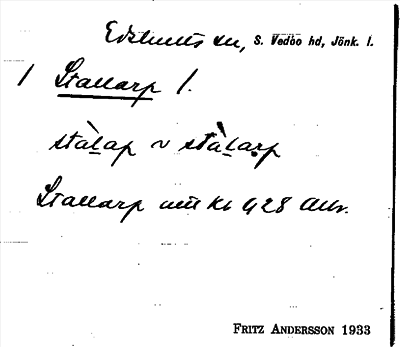 Edshults sn, S. Vedbo hd, Jönk. l.
1 Stallarp l.
stàlap v stàlarp
Stallarp utt Kb 428 Allr.
FRITZ ANDERSSON 1933